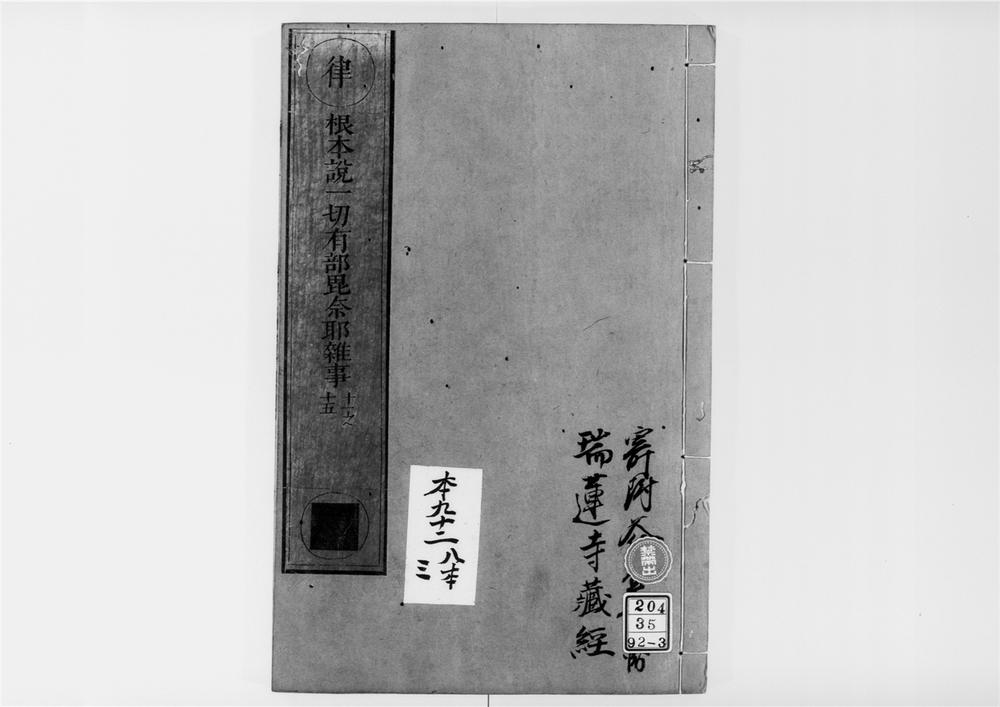 律
根本說一切有部毘奈耶雜事
十一之
十五
寄附
瑞蓮寺藏經
禁帶出
204
35
92-3
本九十二
八本
三